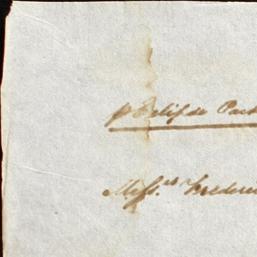 p Eclipse Pack
Mess.rs Frederi